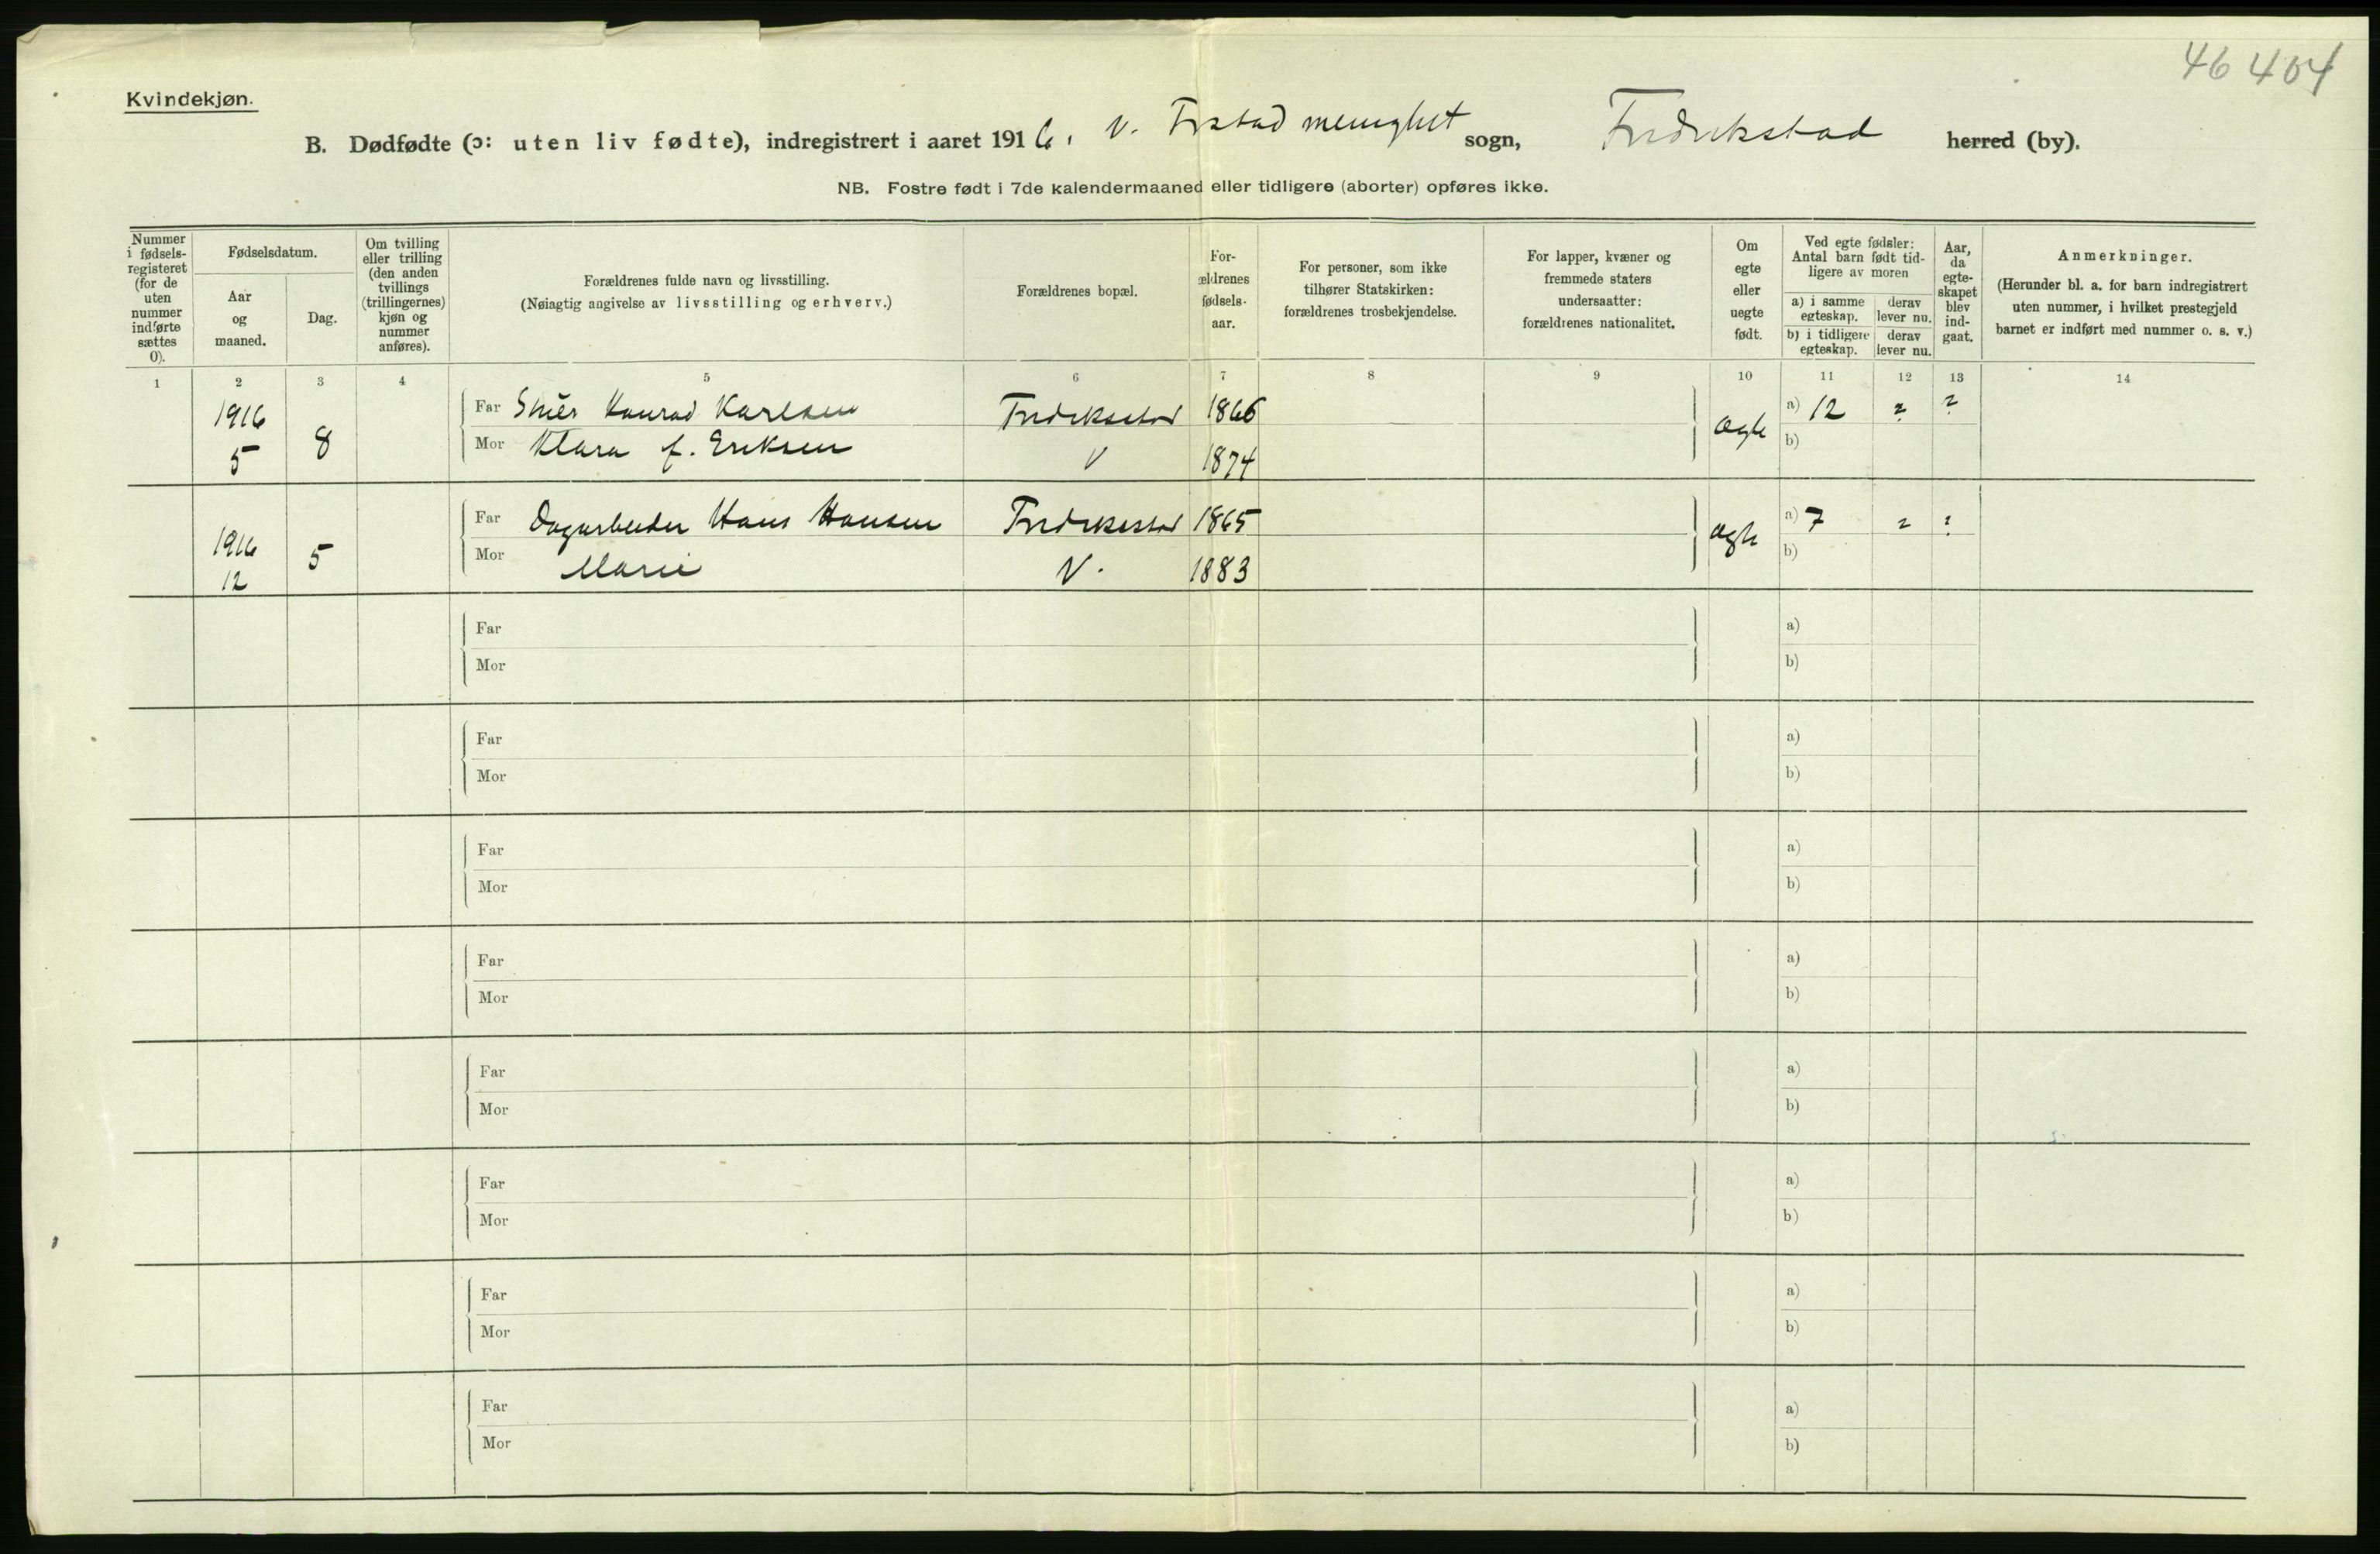 46 404
Kvindekjøn.
B. Dødfødte (ɔ: uten liv fødte), indregistrert i aaret 1916, V. Frstad menighet sogn, Fredrikstad herred (by).
NB. Fostre født i 7de kalendermaaned eller tidligere (aborter) opføres ikke.
Nummer i fødsels-registeret (for de uten nummer indførte sættes 0).
Fødselsdatum.
Aar og maaned.
Dag.
Om tvilling eller trilling (den anden tvillings (trillingernes) kjøn og nummer anføres).
Forældrenes fulde navn og livsstilling.
(Nøiagtig angivelse av livsstilling og erhverv.)
Forældrenes bopæl.
For-ældrenes fødsels-aar.
For personer, som ikke tilhører Statskirken: forældrenes trosbekjendelse.
For lapper, kvæner og fremmede staters undersaatter: forældrenes nationalitet.
Om egte eller uegte født.
Ved egte fødsler: Antal barn født tid-ligere av moren
a) i samme egteskap.
derav lever nu.
b) i tidligere egteskap.
derav lever nu.
Aar, da egte-skapet blev ind-gaat.
Anmerkninger.
(Herunder bl. a. for barn indregistrert uten nummer, i hvilket prestegjeld barnet er indført med nummer o. s. v.)
1 2 3 4 5 6 7 8 9 10 11 12 13 14
1916 Far Konrad Karlsen Fredrikstad 1866 a) 12 ? ?
5 8 Mor Klara f. Eriksen V 1874 ægte b)
Far Dagarbeider Hans Hansen Fredrikstad 1865 a) 7 ? ?
1916 5 ægte
12 Mor Marie V. 1883 b)
Far a)
Mor b)
Far a)
Mor b)
Far a)
Mor b)
Far a)
Mor b)
Far a)
Mor b)
Far a)
Mor b)
Far a)
Mor b)
Far a)
Mor b)